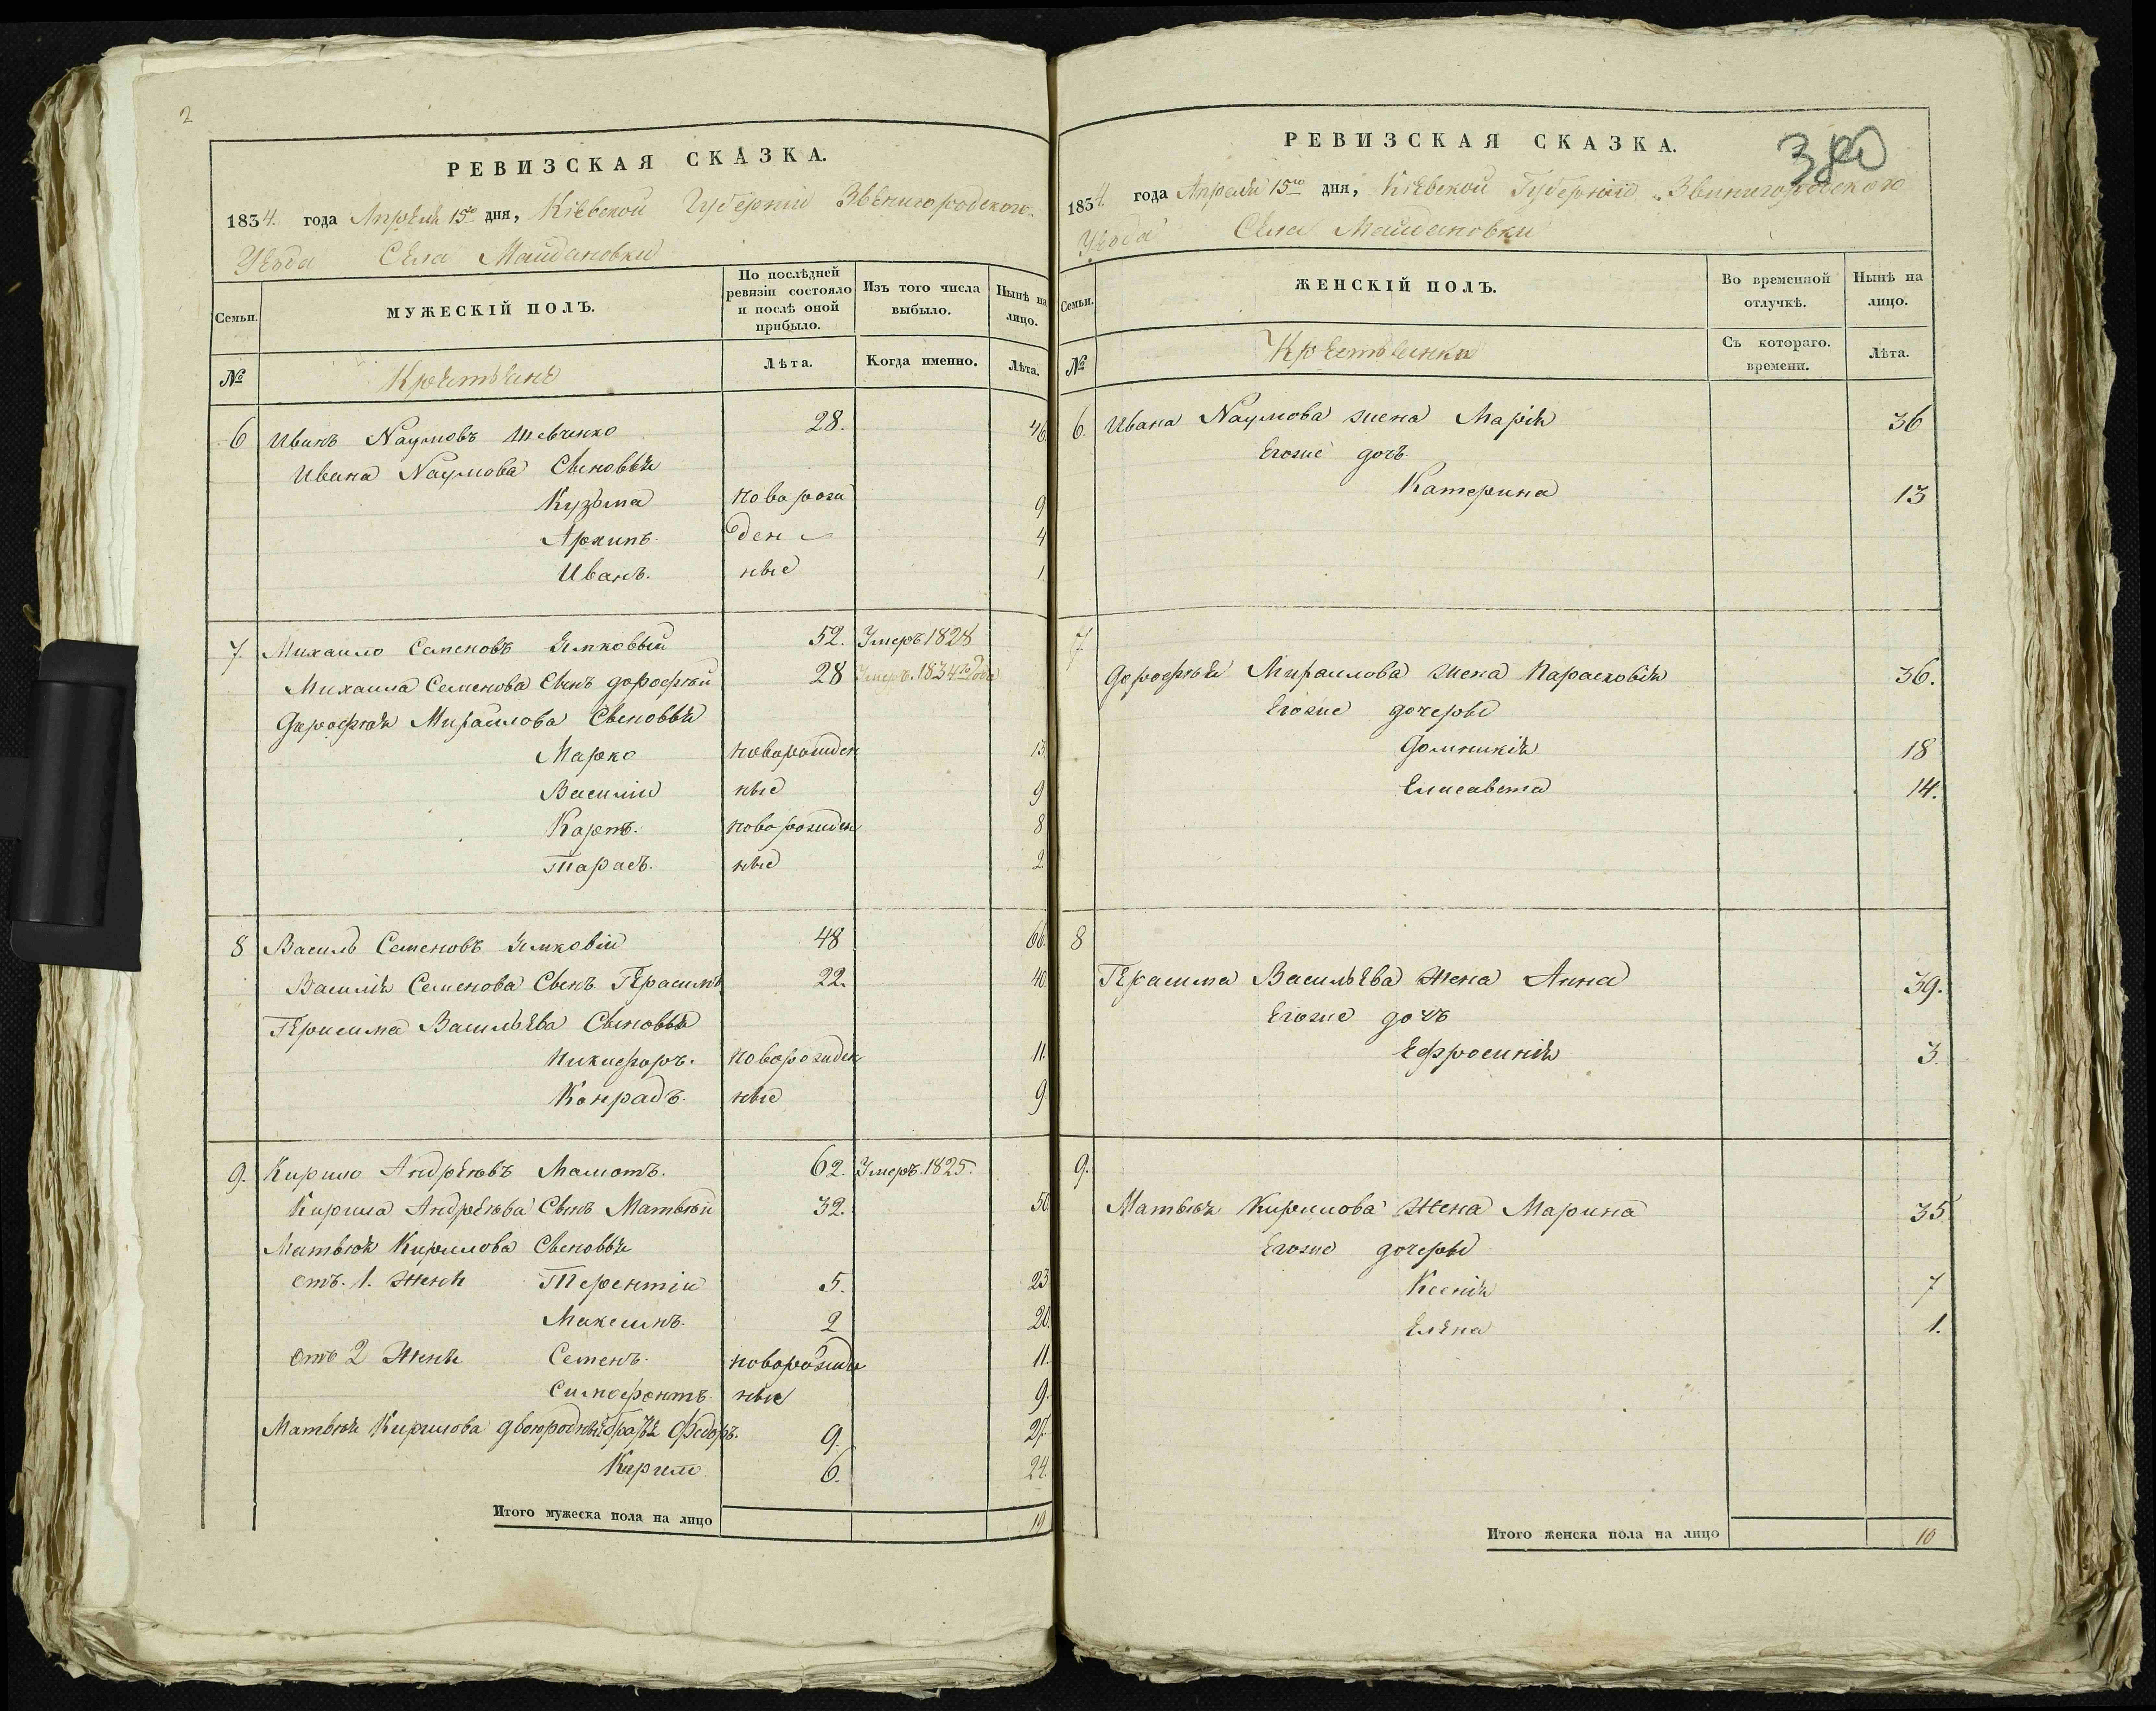 2
РЕВИЗСКАЯ СКАЗКА.
1834. года Апреля 15го дня, Кіевской Губерніи Звенигородского
Уезда Села Майдановки
Семьи.
МУЖЕСКІЙ ПОЛЪ.
По послѣдней ревизіи состояло и послѣ оной прибыло.
Изъ того числа выбыло.
Нынѣ на лицо.
№
Крестьяне
Лѣта.
Когда именно.
Лѣта.
6 Иванъ Наумовъ Шевченко 28. 46
Ивана Наумова Сыновья
Кузьма новорож 9
Архипъ. ден 4
Иванъ. ные 1
7. Михаило Семеновъ 52. Умеръ 1828
Михаила Семенова Сынъ Дорофѣй 28 Умеръ. 1834 года
Дорофѣя Михайлова Сыновья
Марко новорожден 13
Василій ные 9
Карпъ. новорожден 8
Тарасъ. ные 2
8 Василь Семеновъ 48 66.
Василія Семенова Сынъ Герасимъ 22. 40
Герасима Васильева Сыновья
Никифоръ. новорожден 11.
Конрадъ. ные 9
9. Кирило Андреевъ 62. Умеръ. 1825.
Кирила Андреева Сынъ Матвѣй 32. 50
Матвѣя Кирилова Сыновья
отъ. 1. жены Терентій 5. 23
Максимъ. 2 20.
отъ 2 жены Семенъ. новорожде 11.
Симофонтъ. ные 9.
Матвѣя Кирилова двоюродные братья Федоръ. 9. 27.
6. 24.
Итого мужеска пола на лицо 19
РЕВИЗСКАЯ СКАЗКА.
380
1834. года Апреля 15го дня, Кіевской Губерніи Звенигородского
Уезда Села Майдановки
Семьи.
ЖЕНСКІЙ ПОЛЪ.
Во временной отлучкѣ.
Нынѣ на лицо.
№
Крестьянки
Съ котораго. времени.
Лѣта.
6. Ивана Наумова жена Марія 36
Егоже дочь.
Катерина 13
7
Дорофѣя Михаилова жена Парасковія 36.
Егоже дочеры
Домникія 18
Елисавета 14.
8
Герасима Васильева жена Анна 39.
Егоже дочь
Ефросинія 3.
9.
Матвѣя Кирилова жена Марина 35
Егоже дочеры
Ксенія 7
Елена 1.
Итого женска пола на лицо 10